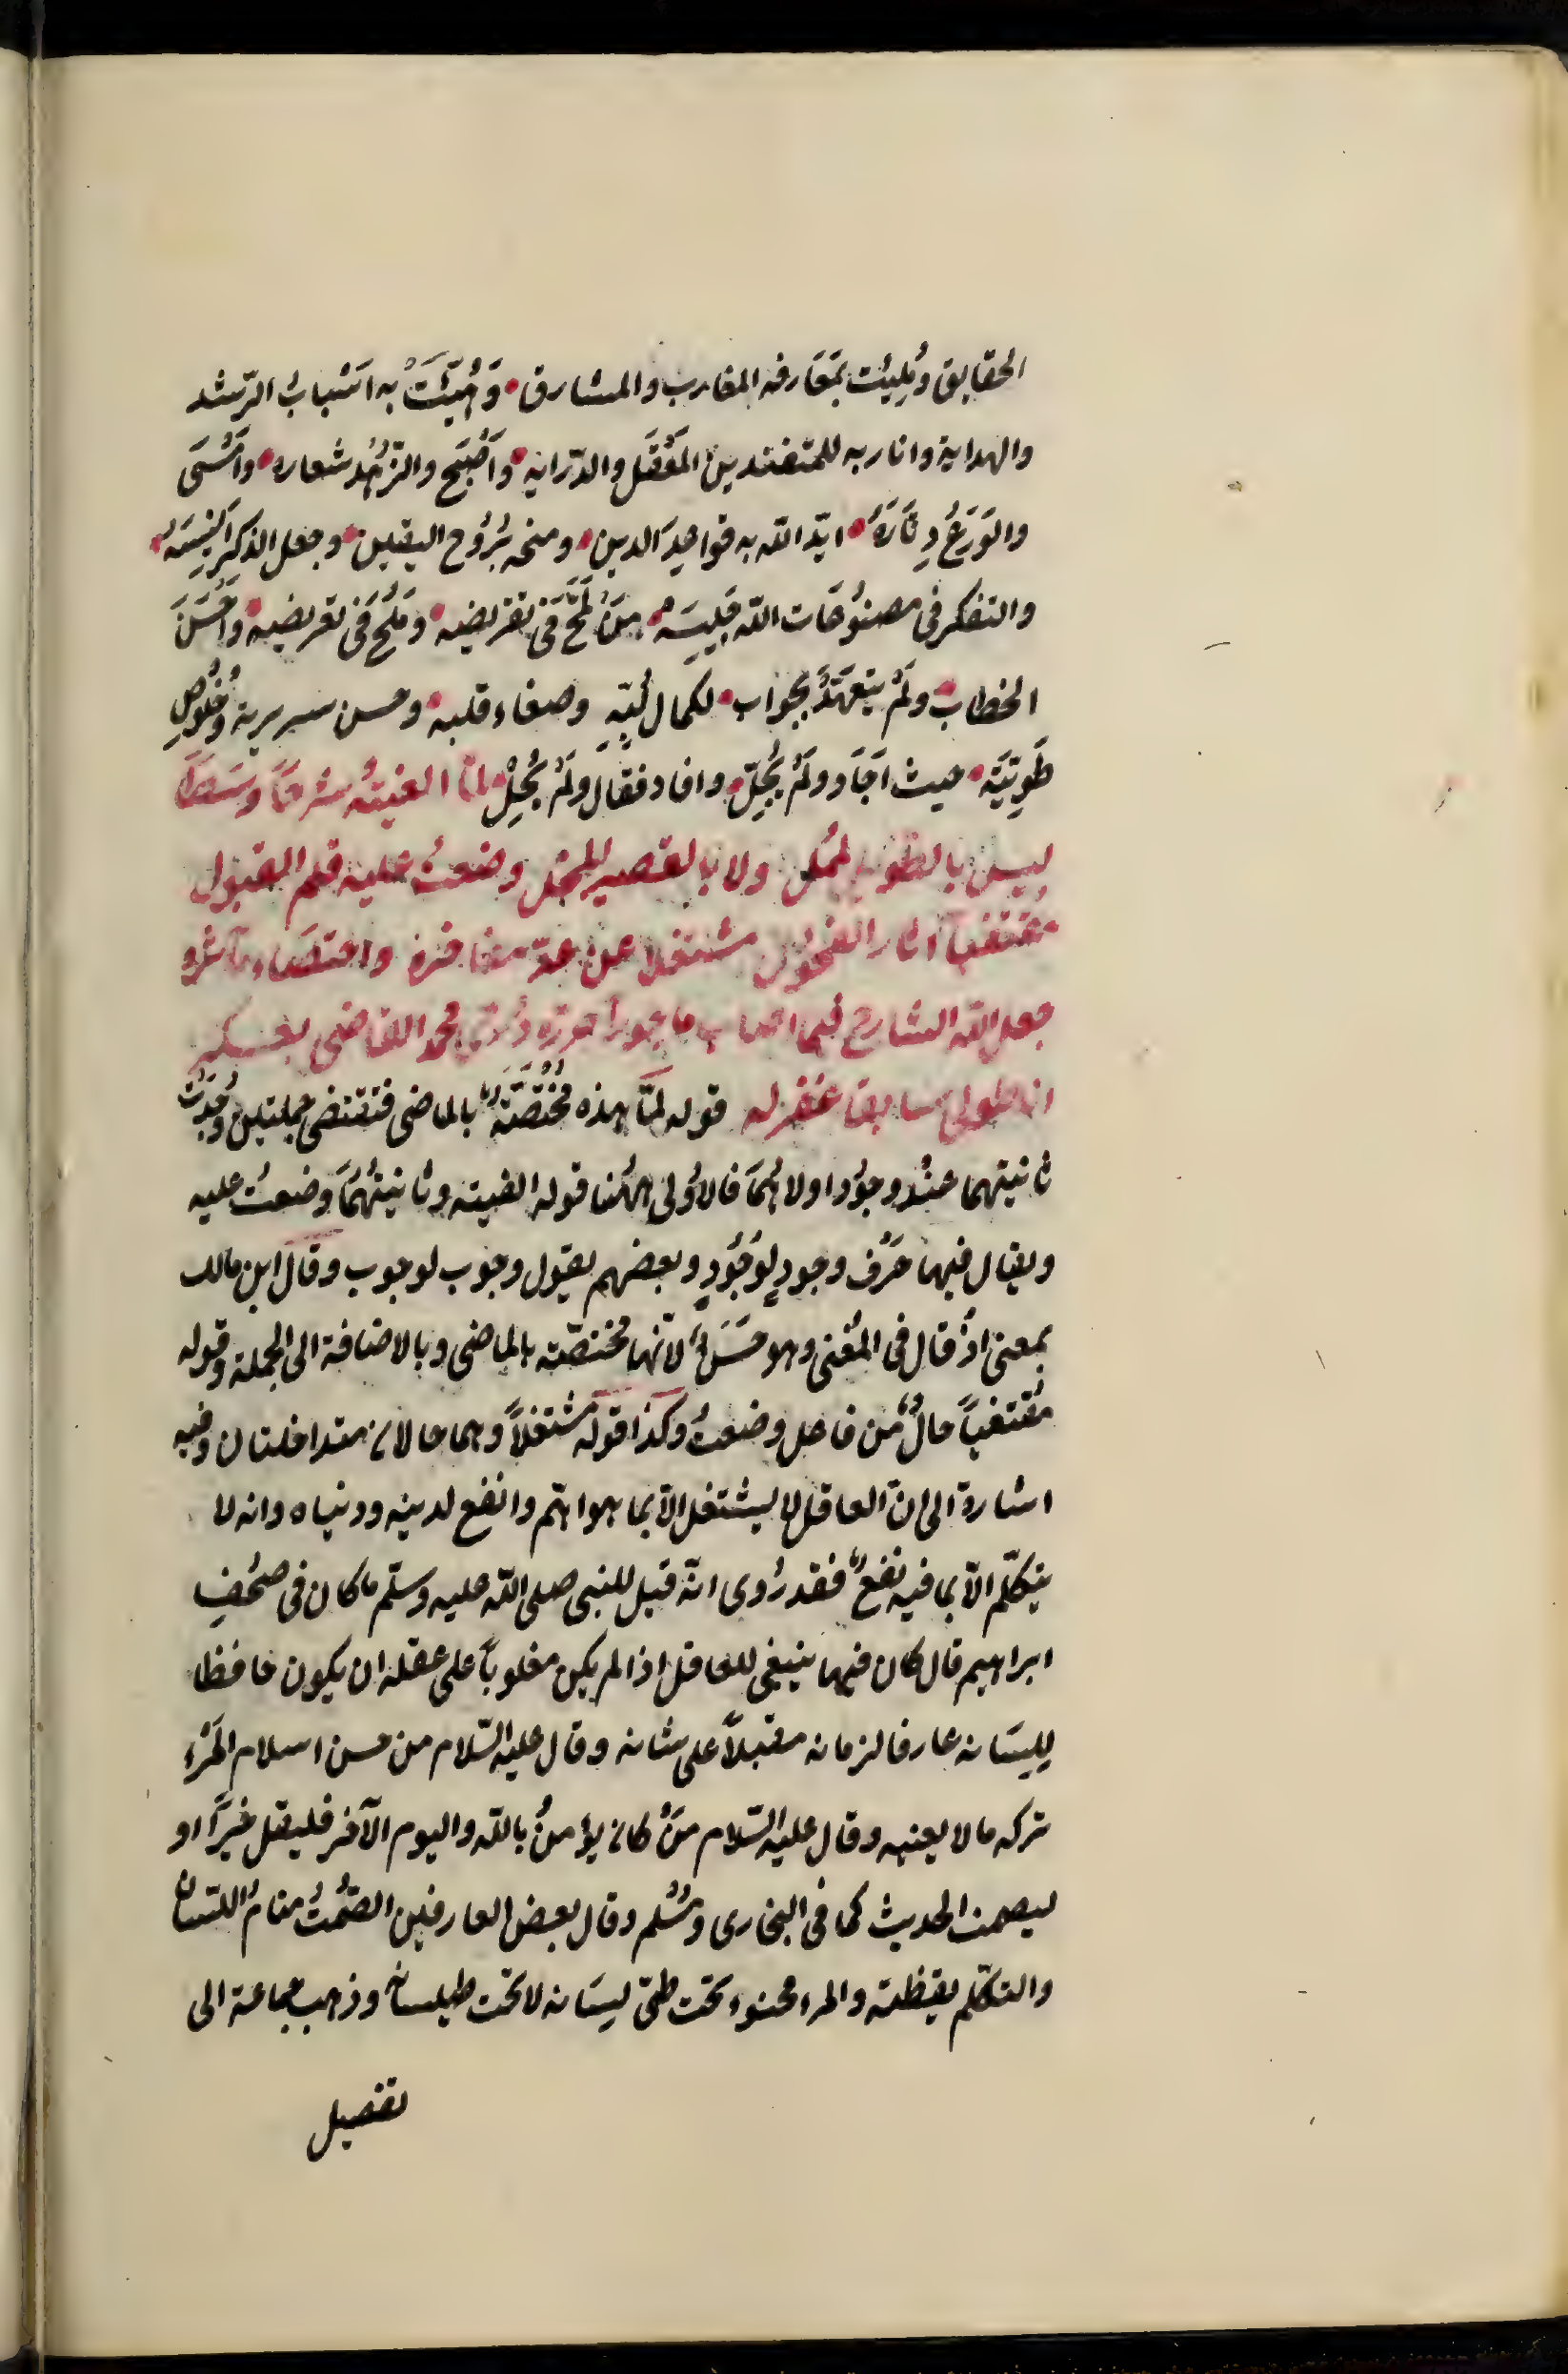 الحقايق ومُلِيئت بمَعَارفه المغارب والمشارق • وَهُيِّئَتْ به اَسْبابُ الرّشد
والهداية وانار به للمتفندين المَعْقَل والدّرايه • واَصْبَح والزّهُد شعاره • واَمْسَى
والوَرَعُ دِثَارَهُ • ايّد الله به قواعِدَ الدين • ومنحه بُرُوح اليقين • وجعل الذكر اَنِيسَهُ •
والتفكر فى مصنُوعَات الله جَلِيسَهُ • مَنْ لمَّحَ فى تقريضه • ومَلُحَ فى تعريضه • واَحْسَنَ
الخطاب • ولَمْ يتعهَّدْ بجواب • لكمال لُبِّهِ وصفاء قلبه • وحسن سريرية وخُلُوصِ
طَوِيّتَه • حيث اَجَاد ولَمْ يُجِلّ • وافاد فقال ولَمْ يُحِلْ • لمّا الفيتُه شرحًا وسَطًا
ليس بالطويل الممُل ولا بالقصير المخل وضعتُ عليه قلم القبول
مُقتفيًا اثار الفحُول مشتغلا عن عدّ مفاخره واحتصَاء مآثره
جعل الله الشارح فيما اصاب ماجورا حرّره محمد القاضى بعسكر
اناطولى سابقا غفر له قوله لمّا هذه مُخْتَصَّة بالماضى فتقتضى جملتين وُجدَتْ
ثانيتهما عنْد وجُود اولاهُمَا فالاُولى ههُنا قوله الفيته وثانيتهُمَا وضعتُ عليه
ويقال فيها حَرْف وجودٍ لوُجُودٍ وبعضهم يقول وجوب لوجوب وقال ابن مالك
بمعنى اذْ قال فى المُغنى وهو حَسَنٌ لانّها مختصّة بالماضى وبالاضافة الى الجملة وقوله
مُقتفيًا حالٌ من فاعل وضعتُ وكذا قوله مُشتغلاً وهما حالان متداخلتان وفيه
اشارة الى انّ العاقل لا يشتغل الاّ بما هو اهَمّ وانفع لدينه ودنياه وانه لا
يتكلّم الاّ بما فيه نفعٌ فقد رُوى انّه قيل للنبى صلى الله عليه وسلّم ما كان فى صحُفِ
ابراهيم قال كان فيها ينبغى للعاقل اذا لم يكن مغلوبًا على عقله ان يكون حافظا
لِلِسَانه عارفا لزمانه مقبلاً على شانه وقال عليه السّلام من حسن اسلام المَرْء
تركه ما لا يعنيه وقال عليه السّلام مَنْ كان يؤمنُ بالله واليوم الآخر فليقل خيرًا او
ليصمت الحديث كما فى البخارى ومُسْلم وقال بعض العارفين الصَّمْتُ منامُ اللّسان
والتكلّم يقظته والمرء مخبوء تحت طىّ لِسَانه لا تحت طيلسانه وذهب جماعة الى
تفصيل